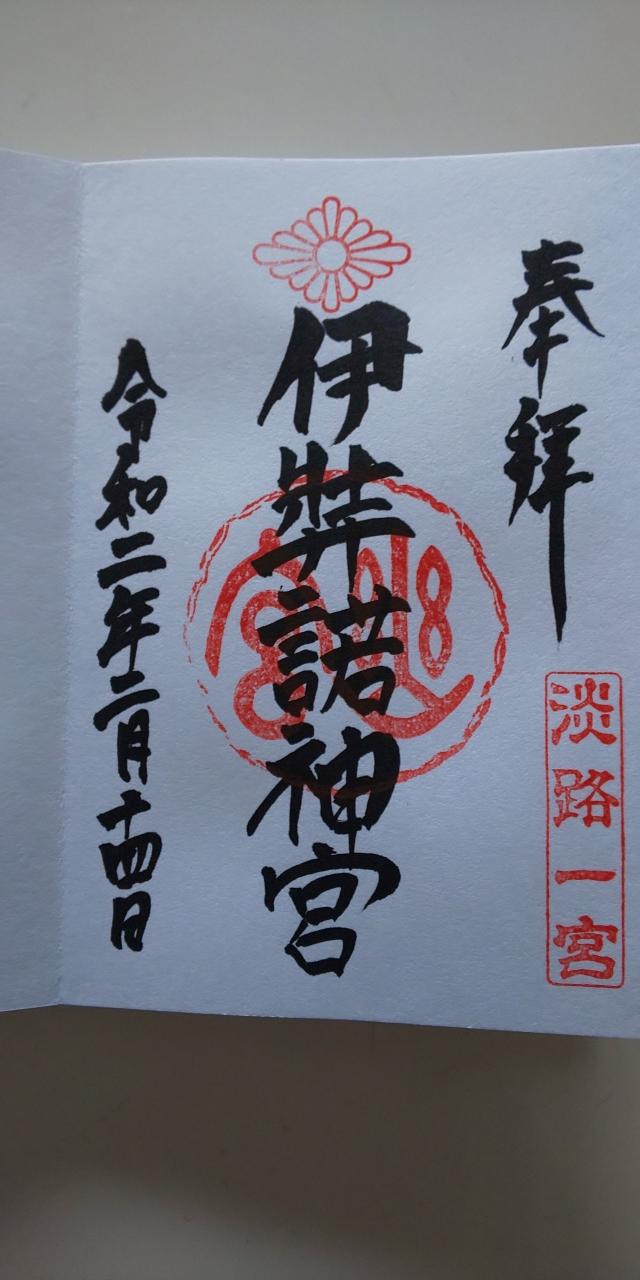 奉拝
淡路一宮
伊弉諾神宮
令和二年二月十四日